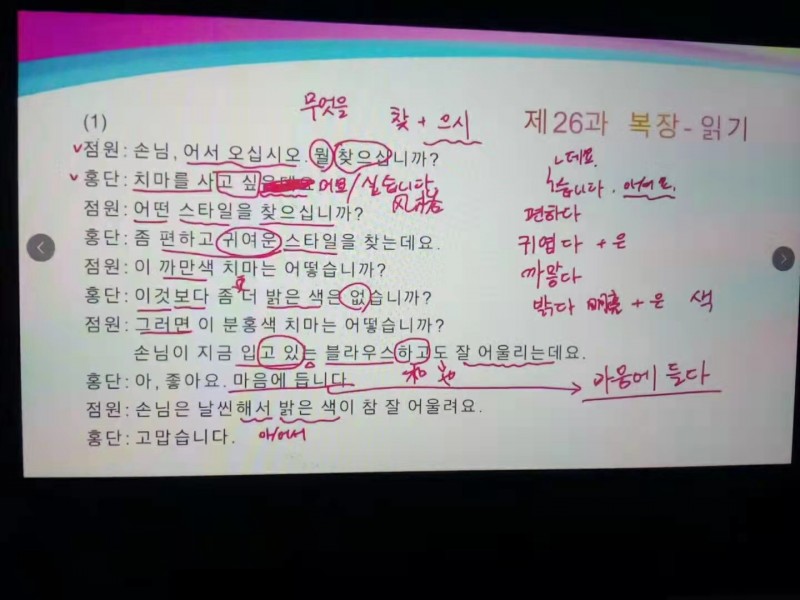 무엇을
찾 + 으시
(1)
제26과 복장 - 읽기
점원: 손님, 어서 오십시오. 뭘 찾으십니까?
홍단: 치마를 사고 싶은데요. 어요/싶습니다
점원: 어떤 스타일을 찾으십니까?
홍단: 좀 편하고 귀여운 스타일을 찾는데요.
점원: 이 까만색 치마는 어떻습니까?
홍단: 이것보다 좀 더 밝은 색은 없습니까?
점원: 그러면 이 분홍색 치마는 어떻습니까?
손님이 지금 입고 있는 블라우스하고도 잘 어울리는데요.
和 也
홍단: 아, 좋아요. 마음에 듭니다.
점원: 손님은 날씬해서 밝은 색이 참 잘 어울려요.
홍단: 고맙습니다.
아/어서
ㄴ데요
습니다. 아/어요.
편하다
귀엽다 + 은
까맣다
밝다 明亮 + 은 색
마음에 들다